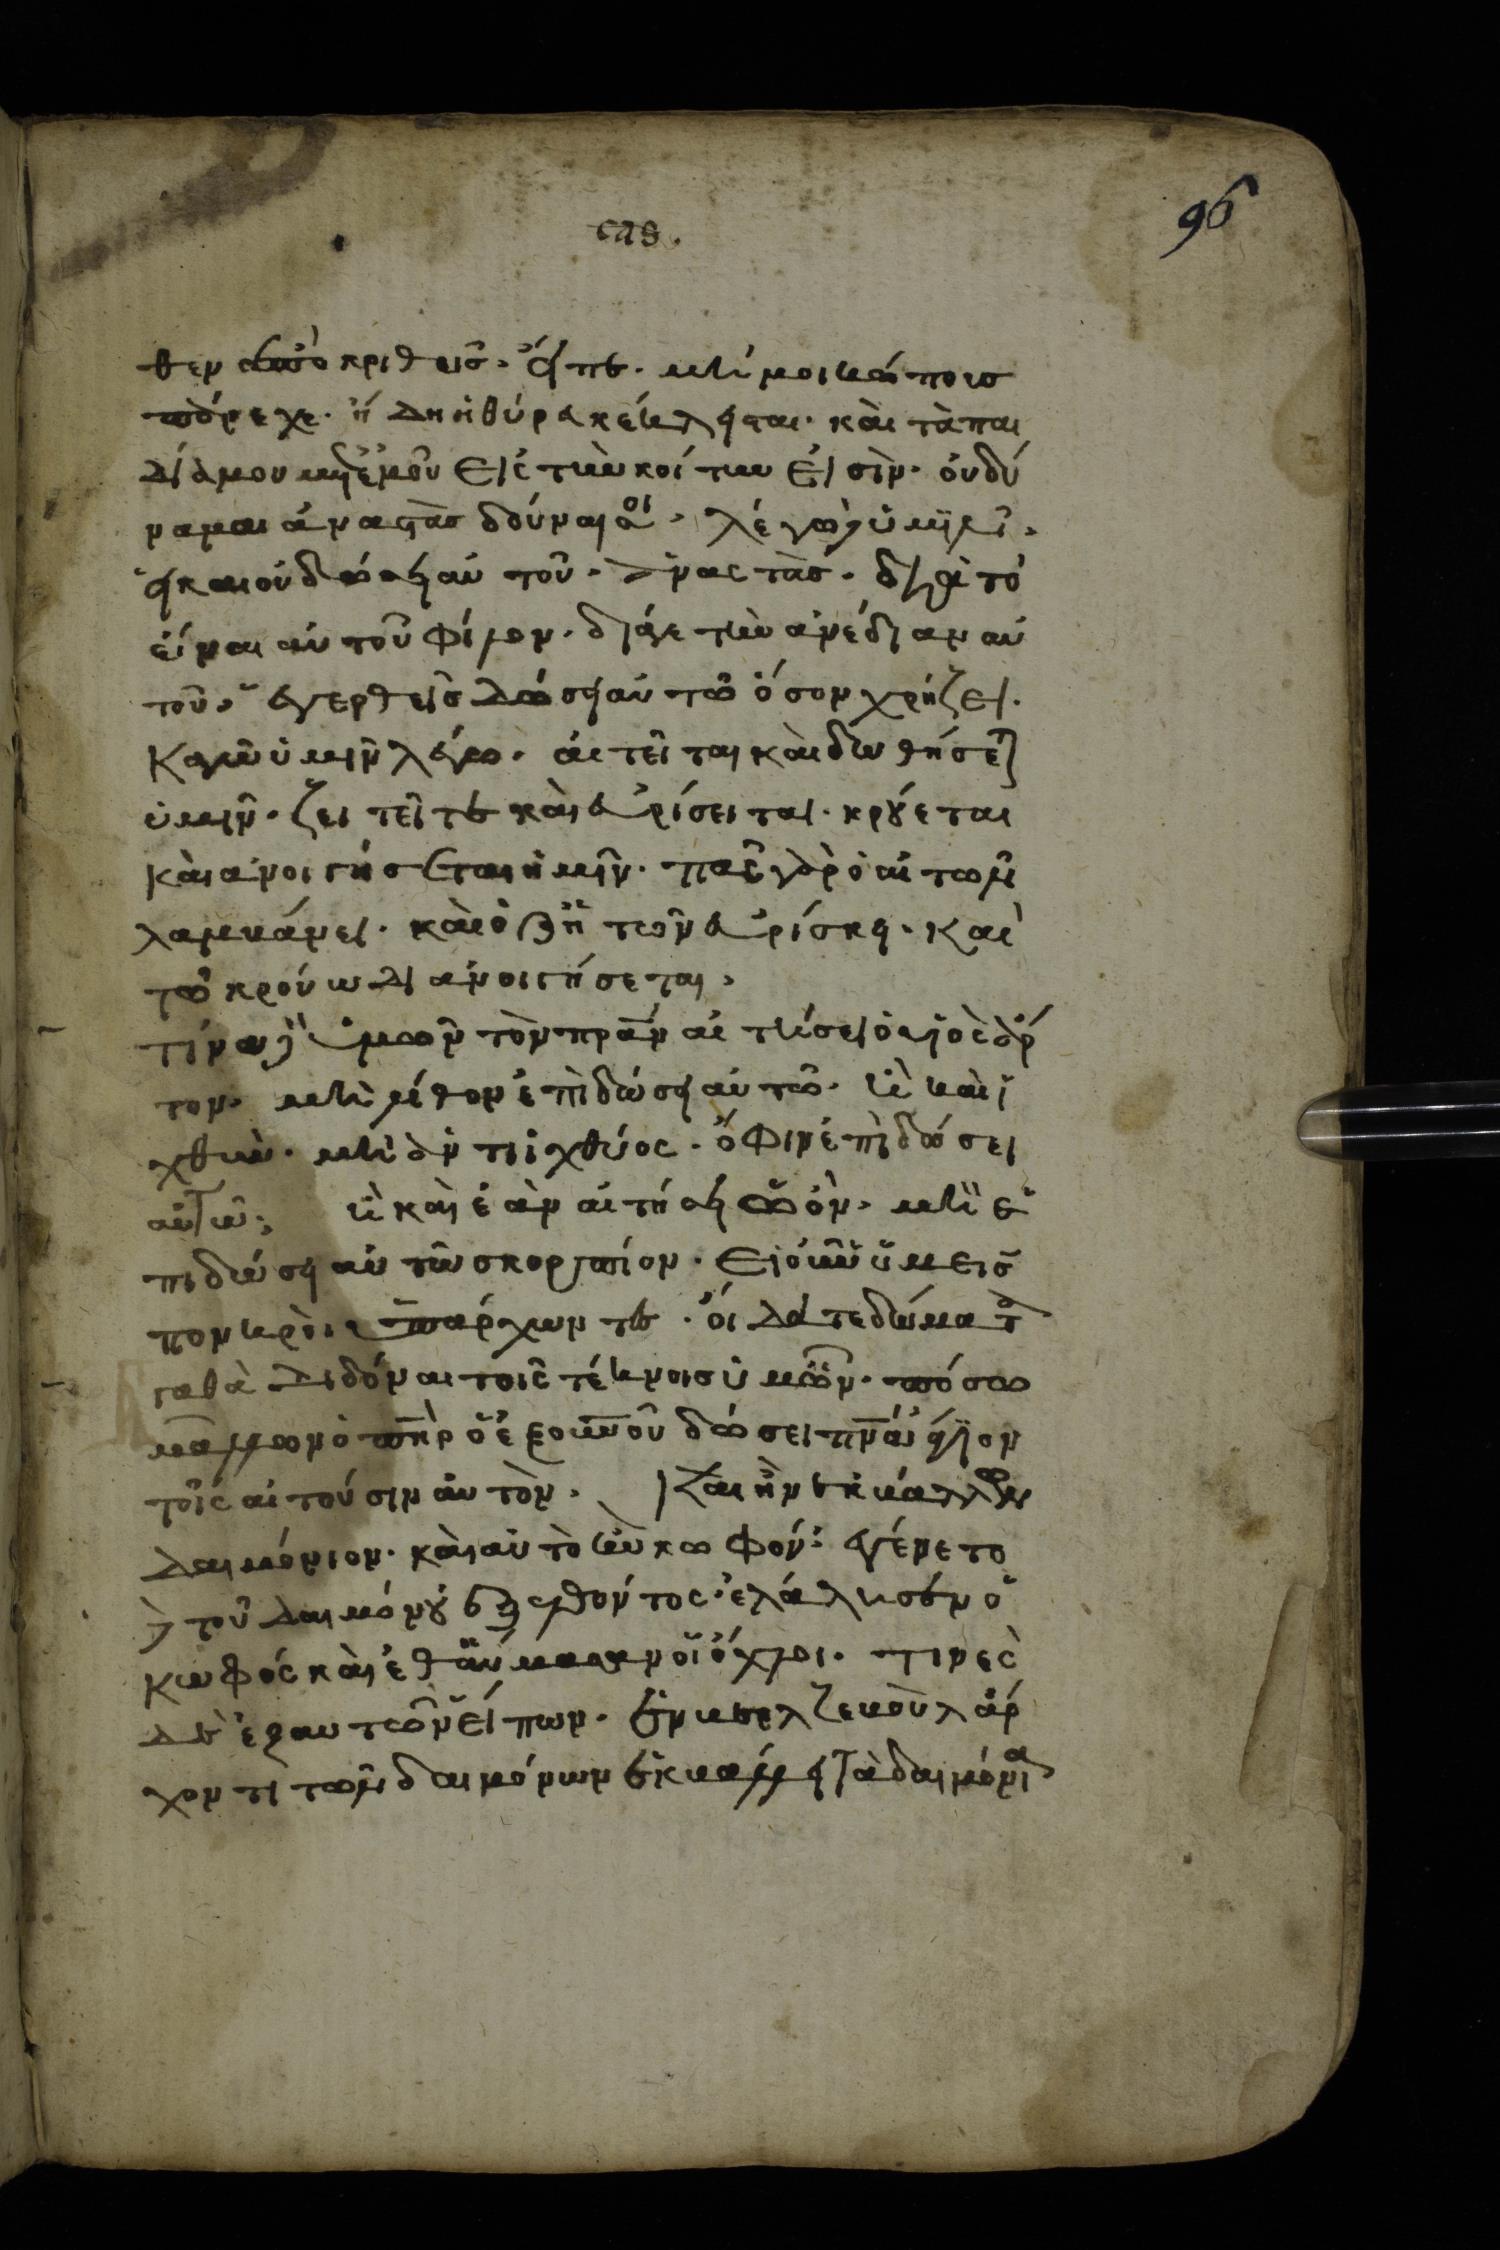 96
θεν ἀποκριθεὶς. εἴπε. μή μοι κόπους
πάρεχε. ἤδη ἡ θύρα κέκλησται. καὶ τὰ παι
δία μου μετ ἐμοῦ εἰς τὴν κοίτην εἰσὶν. οὐ δύ
ναμαι ἀναστὰς δοῦναι σοι. λέγω ὑμῖν.
εἰ καὶ οὐ δώσει αὐτοῦ. ἀναστὰς. διὰ τὸ
εἶναι αὐτοῦ φίλον. διά γε τὴν ἀνέδιαν αὐ
τοῦ. ἐγερθεὶς δώσει αὐτῶ ὅσον χρήζει.
Καγὼ ὑμῖν λέγω. αἰτεῖται καὶ δωθήσεται
ὑμῖν. ζειτεῖτε καὶ εὑρίσειται. κρύεται
καὶ ἀνοιγήσεται ἡμῖν. πᾶς γὰρ ὁ αἰτῶν
λαμβάνει. καὶ ὁ ζητῶν εὑρίσκει. καὶ
τῶ κρούωντι ἀνοιγήσεται.
τίνα δὲ ὑμῶν τὸν πρα αἰτήσει ὁ υἱὸς ἄρ
τον. μὴ λίθον ἐπιδώσει αὐτῶ. ἢ καὶ ἰ
χθὴν. μὴ ἀντὶ ἰχθύος. ὄφιν ἐπιδώσει
αὐτῶ; ἢ καὶ ἐὰν αἰτήσει ὠόν. μὴ ἐ
πιδώσει αὐτῶ σκορπίον. Εἰ οὖν ὑμεῖς
πονηροὶ ὑπάρχωντε. οἴδατε δώματα
γαθὰ διδόναι τοῖς τέκνοις ὑμῶν. πόσω
μᾶλλων ὁ πηρ ὁ ἐξ οὐνοῦ δώσει πνα ἅγιον
τοῖς αἰτούσιν αὐτὸν. Καὶ ἦν ἐκβάλλων
δαιμόνιον. καὶ αὐτὸ ἦν κωφόν. ἐγένετο
δὲ τοῦ δαιμόνου ἐξελθόντος. ἐλάλησεν ὁ
κωφός καὶ ἐθαύμασαν οἱ ὄχλοι. τινὲς
δὲ ἐξ αυτῶν εἶπων. ἐν βεελζεβοὺλ ἄρ
χοντι τῶν δαιμόνων ἐκβάλλει τὰ δαιμόνια